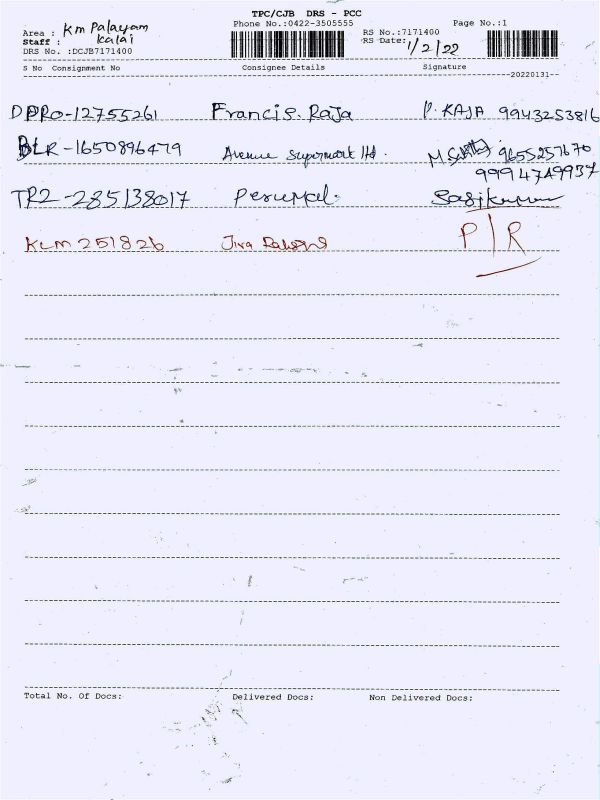 TPC/CJB DRS - PCC
Area : Km Palayam Phone No.:0422-3505555 Page No.:1
Staff : Kalai RS No.:7171400
DRS No. :DCJB7171400 RS Date: 1/2/22
S No Consignment No Consignee Details Signature
20220131
DPRO-12755261 Francis. Raja P. KAJA 9943253816
BLR-1650896479 Avenue Supermart ltd. 9655257670
9994749937
TR2-285138017 Perumal. Sasikumar
KLM 251826 Jira P/R
Total No. Of Docs: Delivered Docs: Non Delivered Docs: